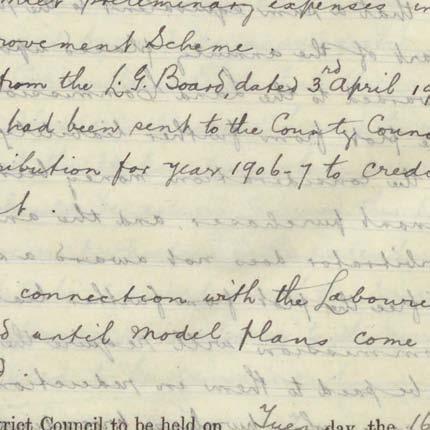 preliminary expenses in
rovement Scheme.
from the L. G. Board, dated 3rd April 19
had been sent to the County Counc
ribution for year 1906-7 to cred
t.
connection with the Laboure
d until model plans come
d
trict Council to be held on Tues day the 16